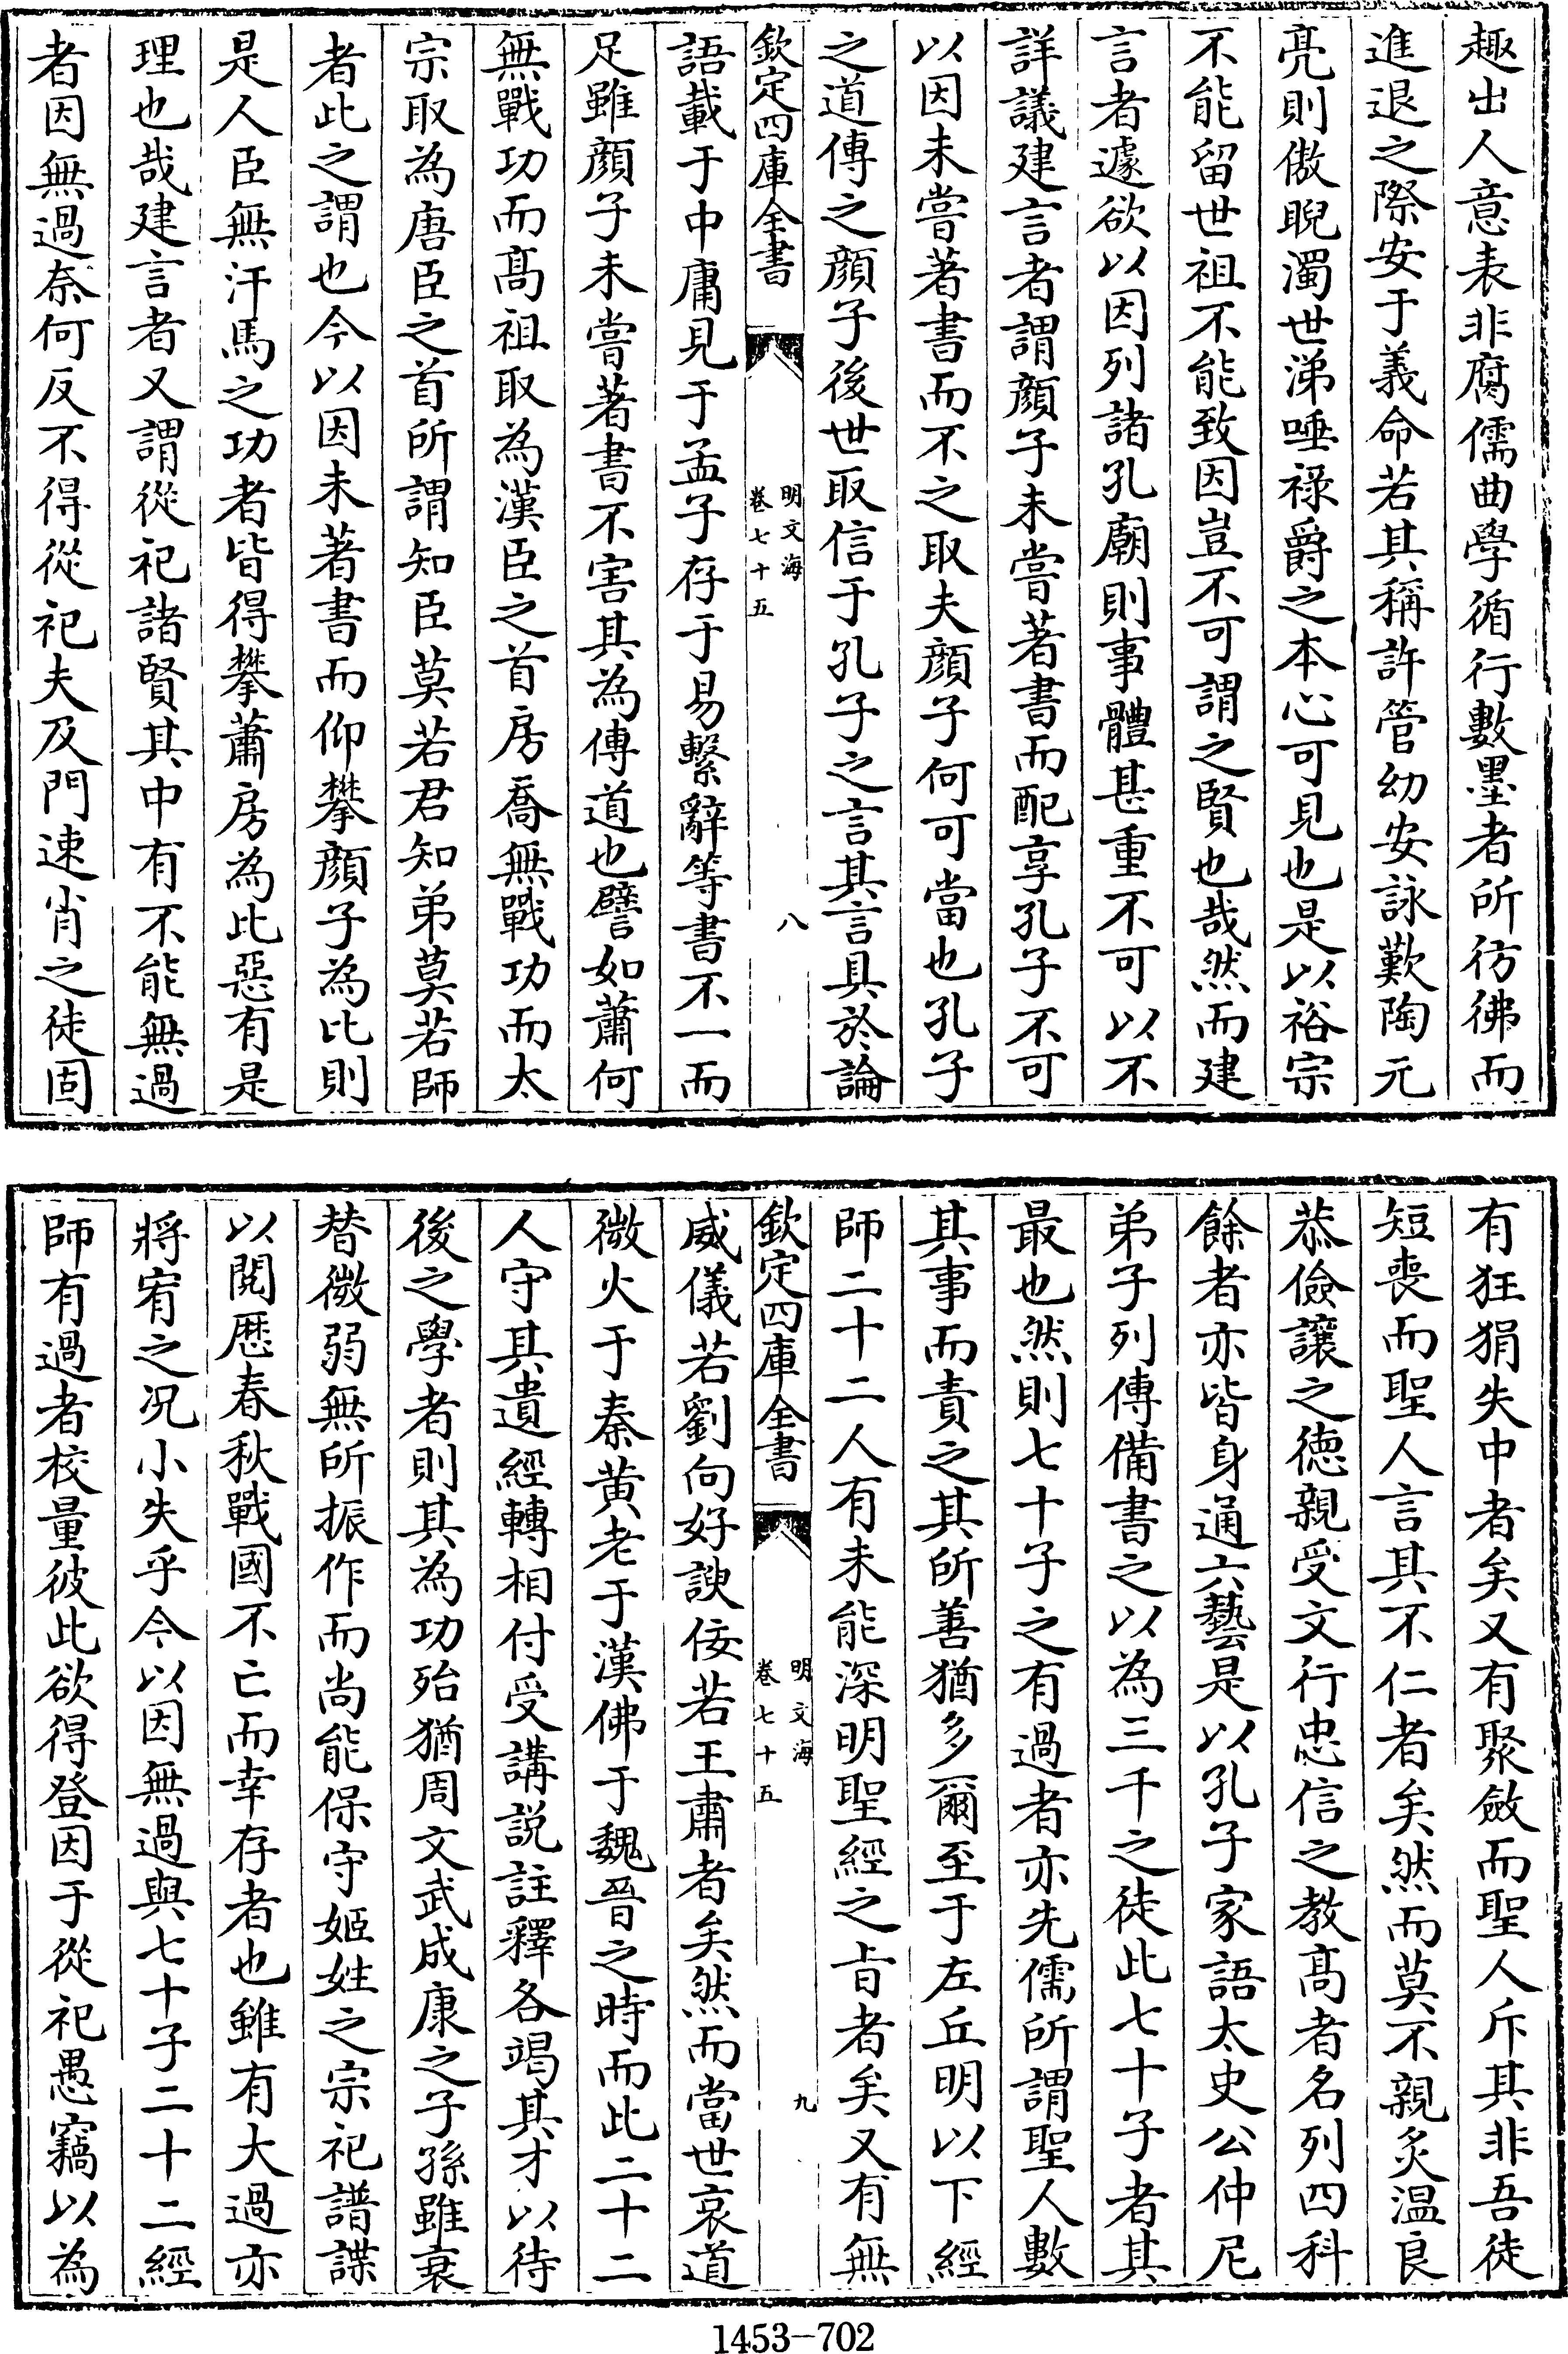 趣出人意表非腐儒曲學循行數墨者所彷彿而
進退之際安于義命若其稱許管幼安詠歎陶元
亮則傲睨濁世涕唾祿爵之本心可見也是以裕宗
不能留世祖不能致因豈不可謂之賢也哉然而建
言者遽欲以因列諸孔廟則事體甚重不可以不
詳議建言者謂顔子未嘗著書而配享孔子不可
以因未嘗著書而不之取夫顔子何可當也孔子
之道傳之顔子後世取信于孔子之言其言具於論
欽定四庫全書
明文海
卷七十五
八
語載于中庸見于孟子存于易繫辭等書不一而
足雖顔子未嘗著書不害其為傳道也譬如蕭何
無戰功而髙祖取為漢臣之首房喬無戰功而太
宗取為唐臣之首所謂知臣莫若君知弟莫若師
者此之謂也今以因未著書而仰攀顔子為比則
是人臣無汗馬之功者皆得攀蕭房為比惡有是
理也哉建言者又謂從祀諸賢其中有不能無過
者因無過奈何反不得從祀夫及門速肖之徒固
有狂狷失中者矣又有聚斂而聖人斥其非吾徒
短喪而聖人言其不仁者矣然而莫不親炙温良
恭儉讓之徳親受文行忠信之教髙者名列四科
餘者亦皆身通六藝是以孔子家語太史公仲尼
弟子列傳備書之以為三千之徒此七十子者其
最也然則七十子之有過者亦先儒所謂聖人數
其事而責之其所善猶多爾至于左丘明以下經
師二十二人有未能深明聖經之㫖者矣又有無
欽定四庫全書
明文海
卷七十五
九
威儀若劉向好諛佞若王肅者矣然而當世衰道
微火于秦黄老于漢佛于魏晉之時而此二十二
人守其遺經轉相付受講説註釋各竭其才以待
後之學者則其為功殆猶周文武成康之子孫雖衰
替微弱無所振作而尚能保守姬姓之宗祀譜諜
以閲厯春秋戰國不亡而幸存者也雖有大過亦
將宥之况小失乎今以因無過與七十子二十二經
師有過者校量彼此欲得登因于從祀愚竊以為
1453-702